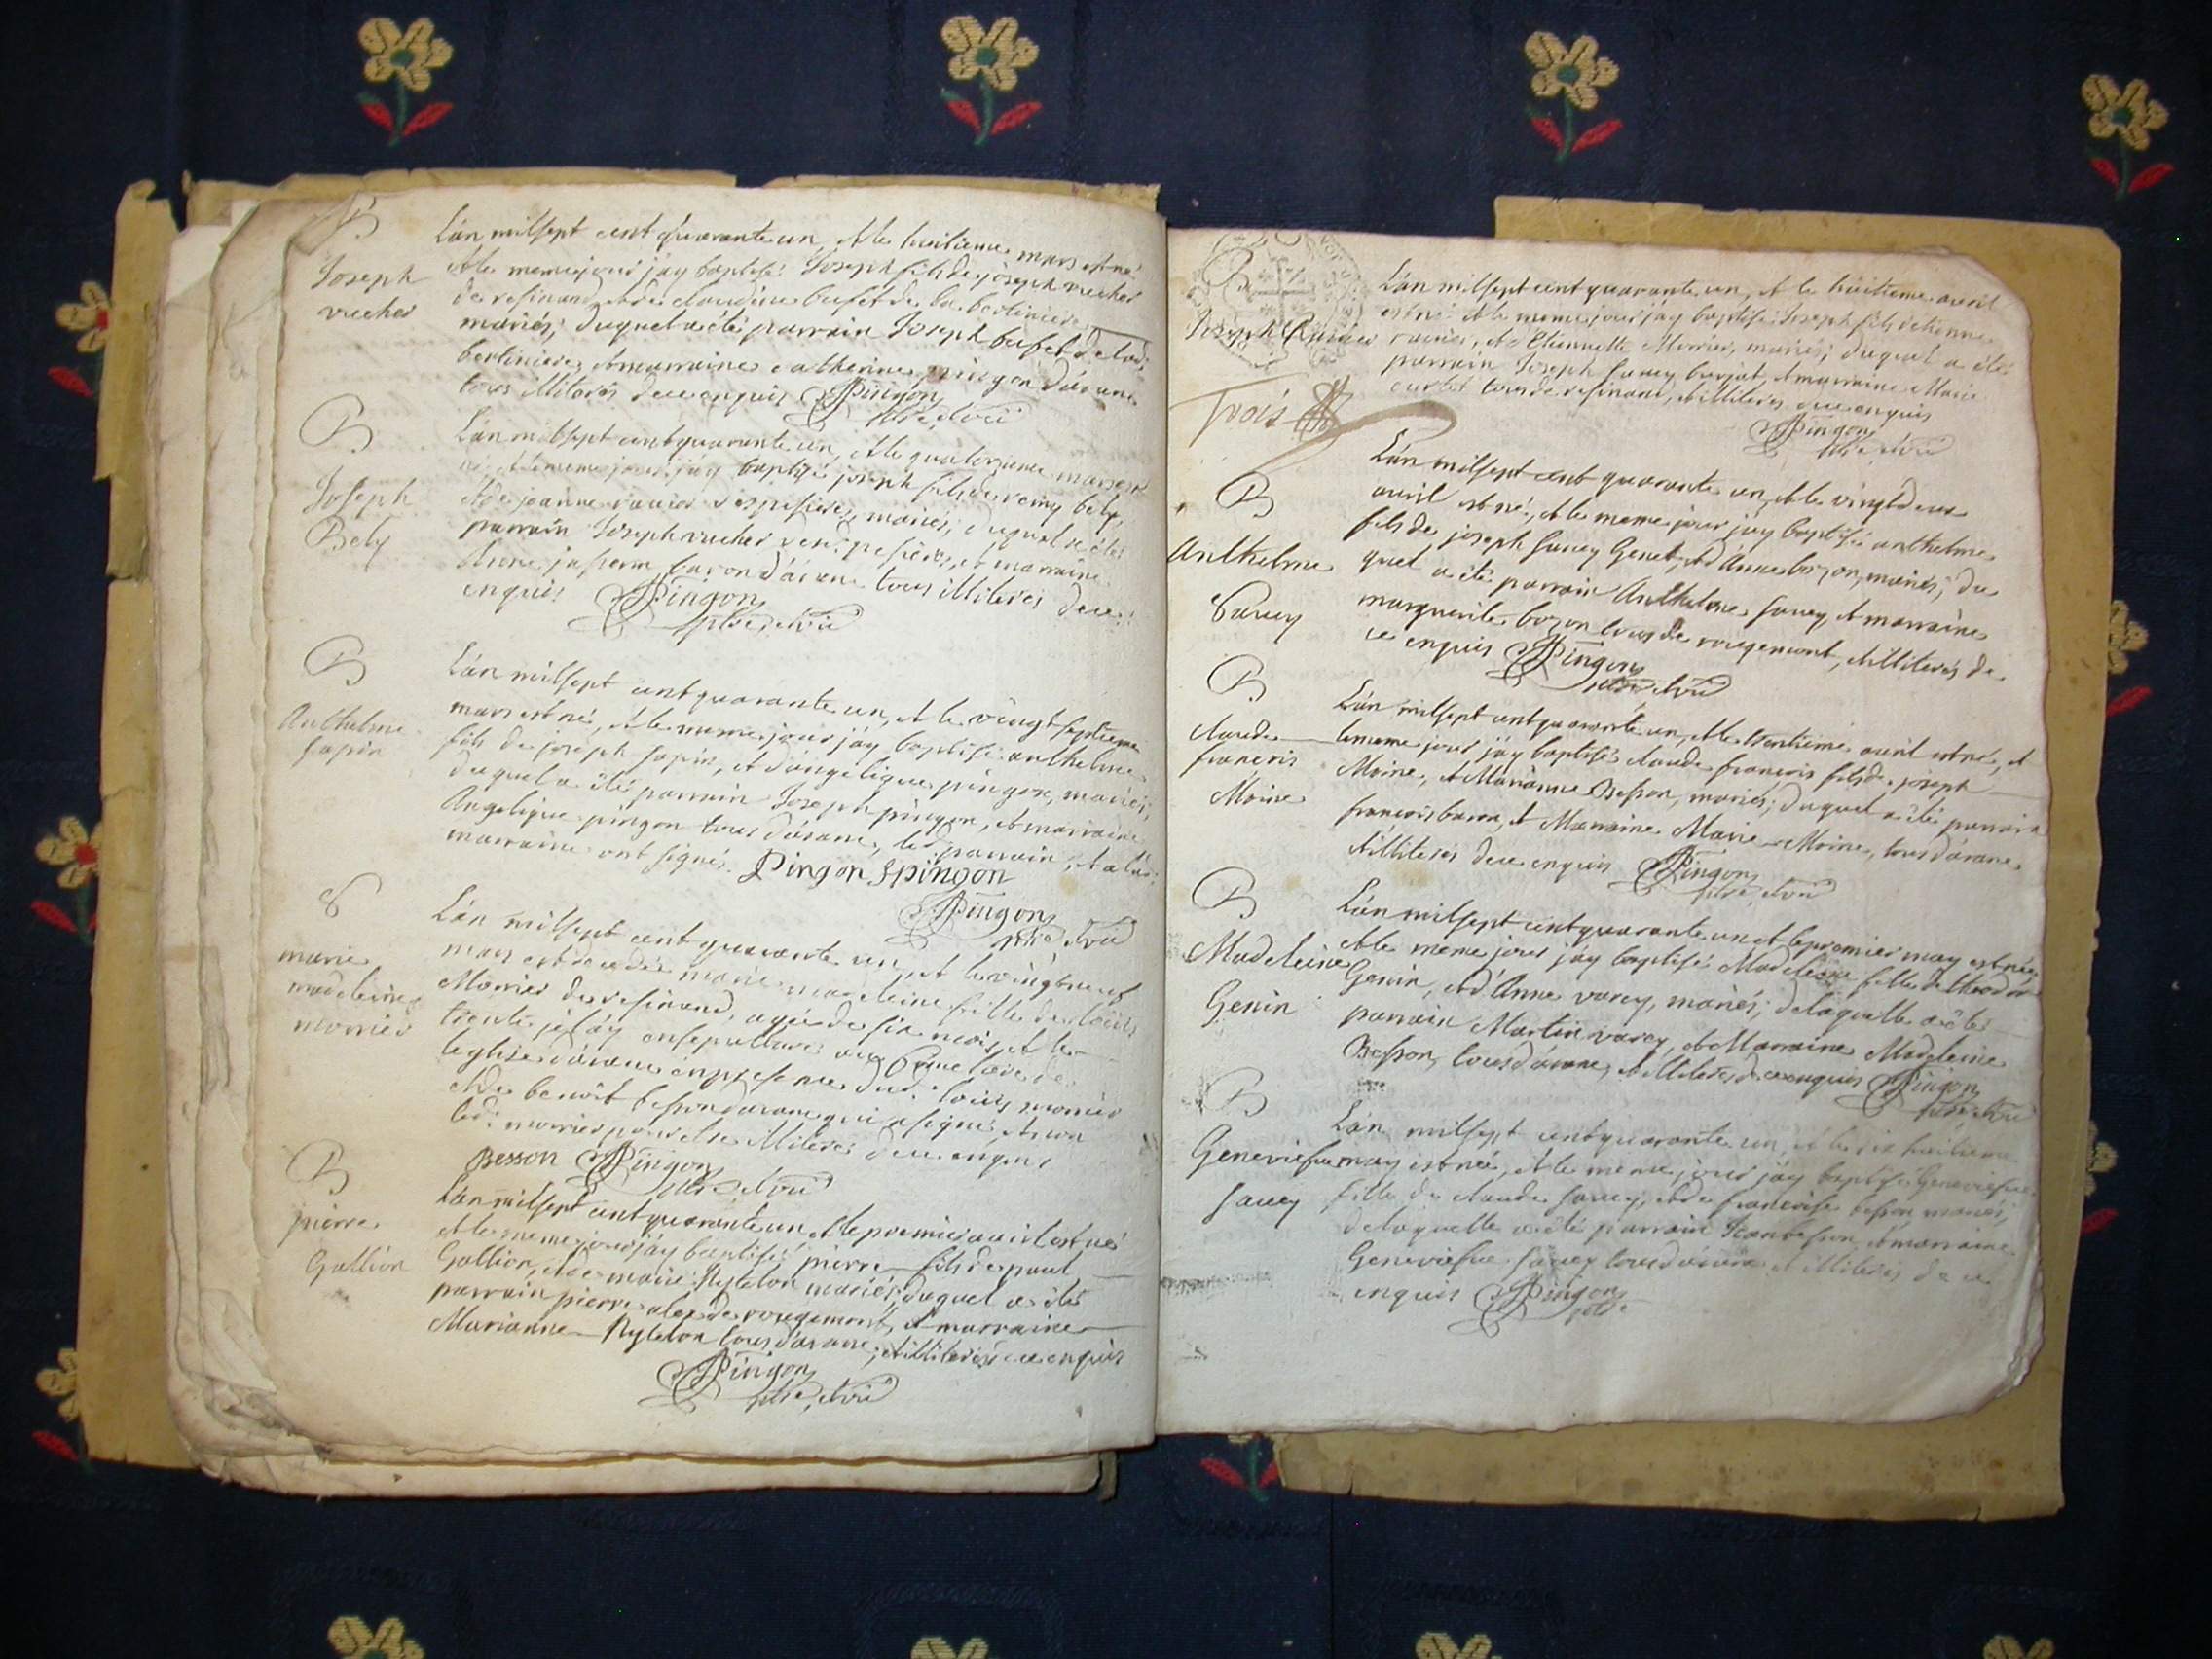 B
Joseph
vucher
L'an mil sept cent quarante un, et le huitieme mars est né
et le meme jour j'ay baptisé Joseph fils de joseph vucher
de resinand, et de claudine bufet de la bertiniere
mariés; duquel a été parrain Joseph bufet de lad:
bertiniere, et marraine catherine pingon d'arane
tous illiterés de ce enquis Pingon
ptre et vic
B
Joseph
Bely
L'an mil sept cent quarante un, et le quatorzieme mars est
né et le meme jour j'ay baptisé joseph fils de remy bely,
et de jeanne ravier mariés; duquel a été
parrain Joseph vucher et marraine
Anne d'arane tous illiterés de ce
enquis Pingon
ptre et vic
B
Anthelme
sapin
L'an mil sept cent quarante un, et le vingt septieme
mars est né, et le meme jour j'ay baptisé anthelme
fils de joseph sapin, et d'angelique pingon, mariés;
duquel a été parrain Joseph pingon, et marraine
Angelique pingon tous d'arane, les parrain, et
marraine ont signé. Pingon Jpingon
Pingon
ptre et vic
S
marie
madeleine
morrier
L'an mil sept cent quarante un, et le vingt neuf
mars est decedée marie madeleine fille de loüis
Morrier de resinand, agée de six mois, et le
trente je l'ay ensepulturé au cimetiere de
l'eglise d'arane en presence dud: loüis morrier
et de benoît besson d'arane qui a signé et non
led: morrier pour etre illiteré de ce enquis
Besson Pingon
ptre et vic
B
pierre
Gallion
L'an mil sept cent quarante un et le premier avril est né
et le meme jour j'ay baptisé pierre fils de paul
Gallion, et de marie Nyleton mariés; duquel a été
parrain pierre alex de rougemont, et marraine
Marianne Nyleton tous d'arane, et illiterés de ce enquis
Pingon
ptre et vic
B
Joseph Ravier
L'an mil sept cent quarante un, et le huitieme avril
est né et le meme jour j'ay baptisé Joseph fils d'etienne
ravier, et d'Etiennette Morrier, mariés; duquel a été
parrain Joseph savey barjat, et marraine Marie
curtet tous de resinand, et illiterés de ce enquis
Pingon
ptre et vic
Trois
B
Anthelme
Savey
L'an mil sept cent quarante un, et le vingt deux
avril est né, et le meme jour j'ay baptisé anthelme
fils de joseph savey Genet, et d'Anne bozon, mariés; du
quel a été parrain Anthelme savey et marraine
marguerite bozon tous de rougemont, et illiterés de
ce enquis Pingon
ptre et vic
B
claude
francois
Moine
L'an mil sept cent quarante un, et le trentieme avril est né, et
le meme jour j'ay baptisé claude francois fils de joseph
Moine, et Marianne Besson, mariés; duquel a été parrain
francois baron, et Marraine Marie Moine, tous d'arane,
et illiterés de ce enquis Pingon
ptre et vic
B
Madeleine
Genin
L'an mil sept cent quarante un et le premier may est née
et le meme jour j'ay baptisé Madeleine fille de theodore
Genin, et d'Anne varey, mariés; de laquelle a été
parrain Martin varey, et Marraine Madeleine
Besson, tous d'arane, et illiterés de ce enquis Pingon
ptre et vic
B
Geneviefve
Savey
L'an mil sept cent quarante un, et le dix huitieme
may est née, et le meme jour j'ay baptisé Geneviefve
fille de claude savey, et de francoise besson mariés;
de laquelle a été parrain Jean besson, et marraine
Geneviefve savey tous d'arane et illiterés de ce
enquis Pingon
ptre